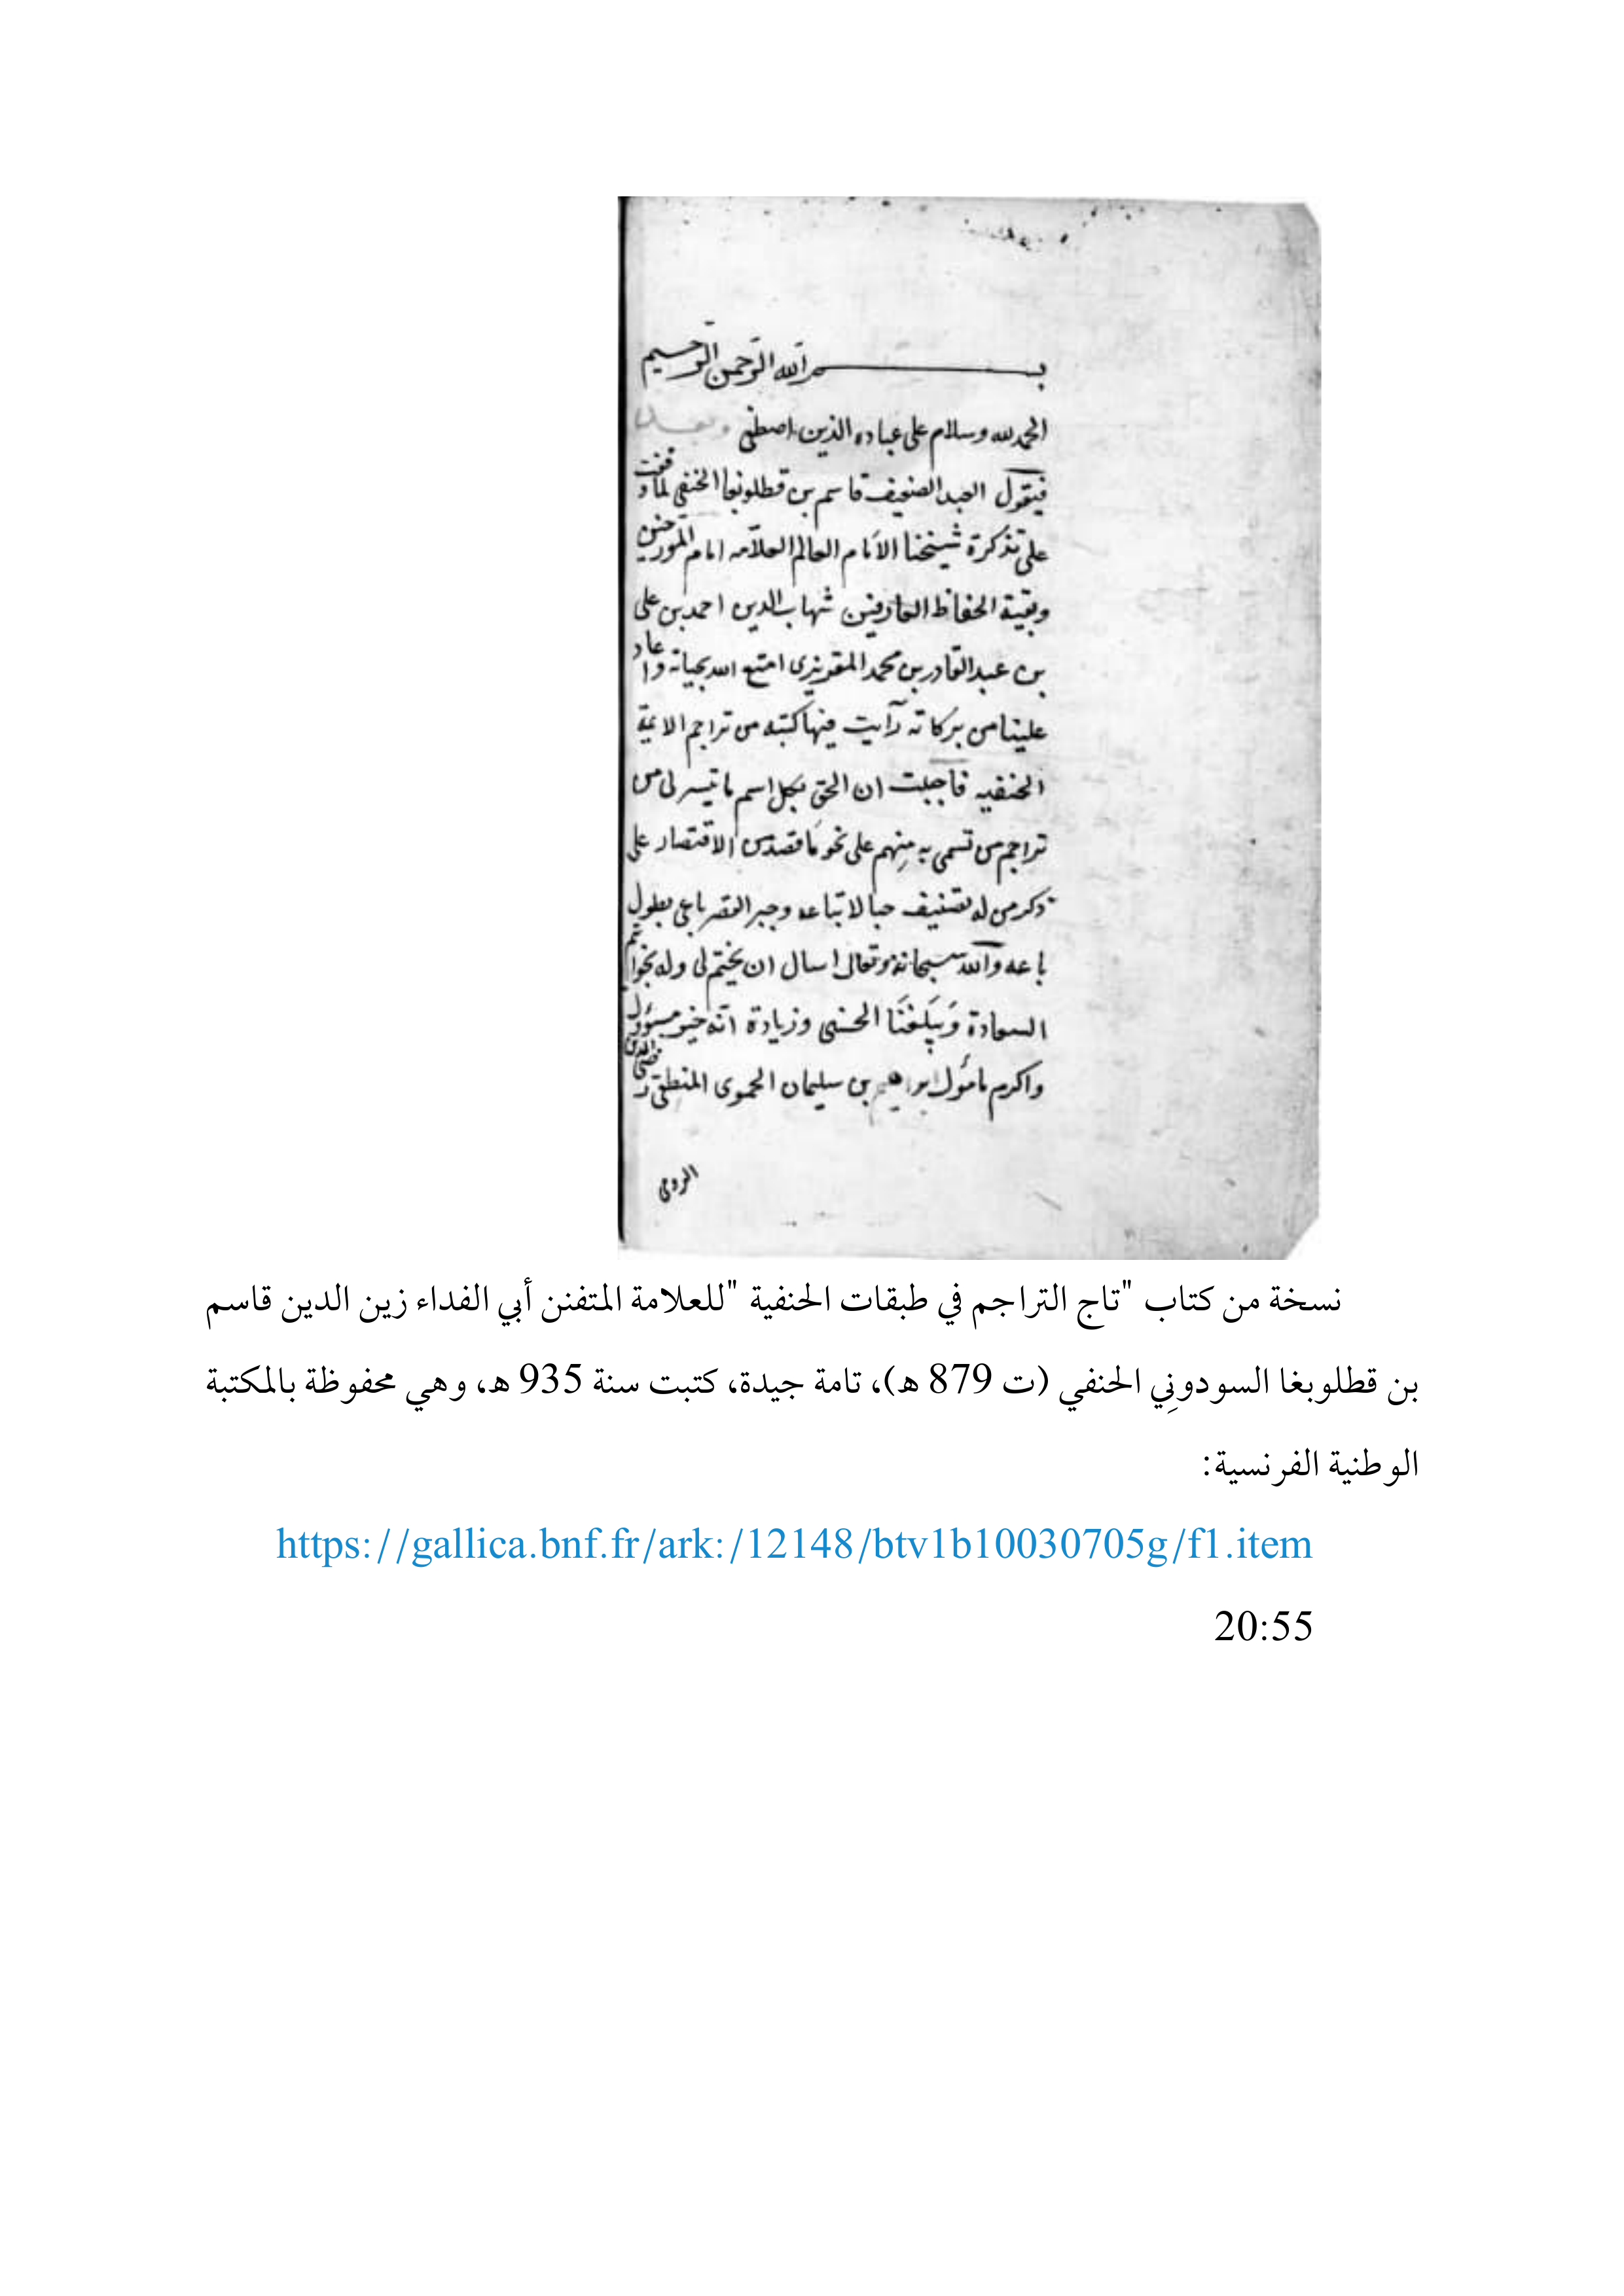 بسم الله الرحمن الرحيم
الحمد لله وسلام على عباده الذين اصطفى وبعد
فيقول العبد الضعيف قاسم بن قطلوبغا الحنفي لما وقفت
على تذكرة شيخنا الامام العالم العلامه امام المورخين
وبقية الحفاظ العارفين شهاب الدين احمد بن على
بن عبد القادر بن محمد المقريزى امتع الله بحياته واعاد
علينا من بركاته رآيت فيها كتبه من تراجم الائمة
الحنفيه فاحببت ان الحق بكل اسم ما تيسر لى من
تراجم من تسمى به منهم على نحو ما قصد من الاقتصار على
ذكر من له تصنيف حبا لاتباعه وجبر القصر باعى بطول
باعه والله سبحانه وتعالى اسال ان يختم لى وله بخواتم
السعادة وَيُبَلِّغَنَا الحسنى وزيادة انه خير مسؤل
واكرم مامُول ابراهيم بن سليمان الحموى المنطقى رضى الدين
الرومى
نسخة من كتاب "تاج التراجم في طبقات الحنفية "للعلامة المتفنن أبي الفداء زين الدين قاسم
بن قطلوبغا السودونِي الحنفي (ت 879 هـ)، تامة جيدة، كتبت سنة 935 هـ، وهي محفوظة بالمكتبة
الوطنية الفرنسية:
https://gallica.bnf.fr/ark:/12148/btv1b10030705g/f1.item
20:55